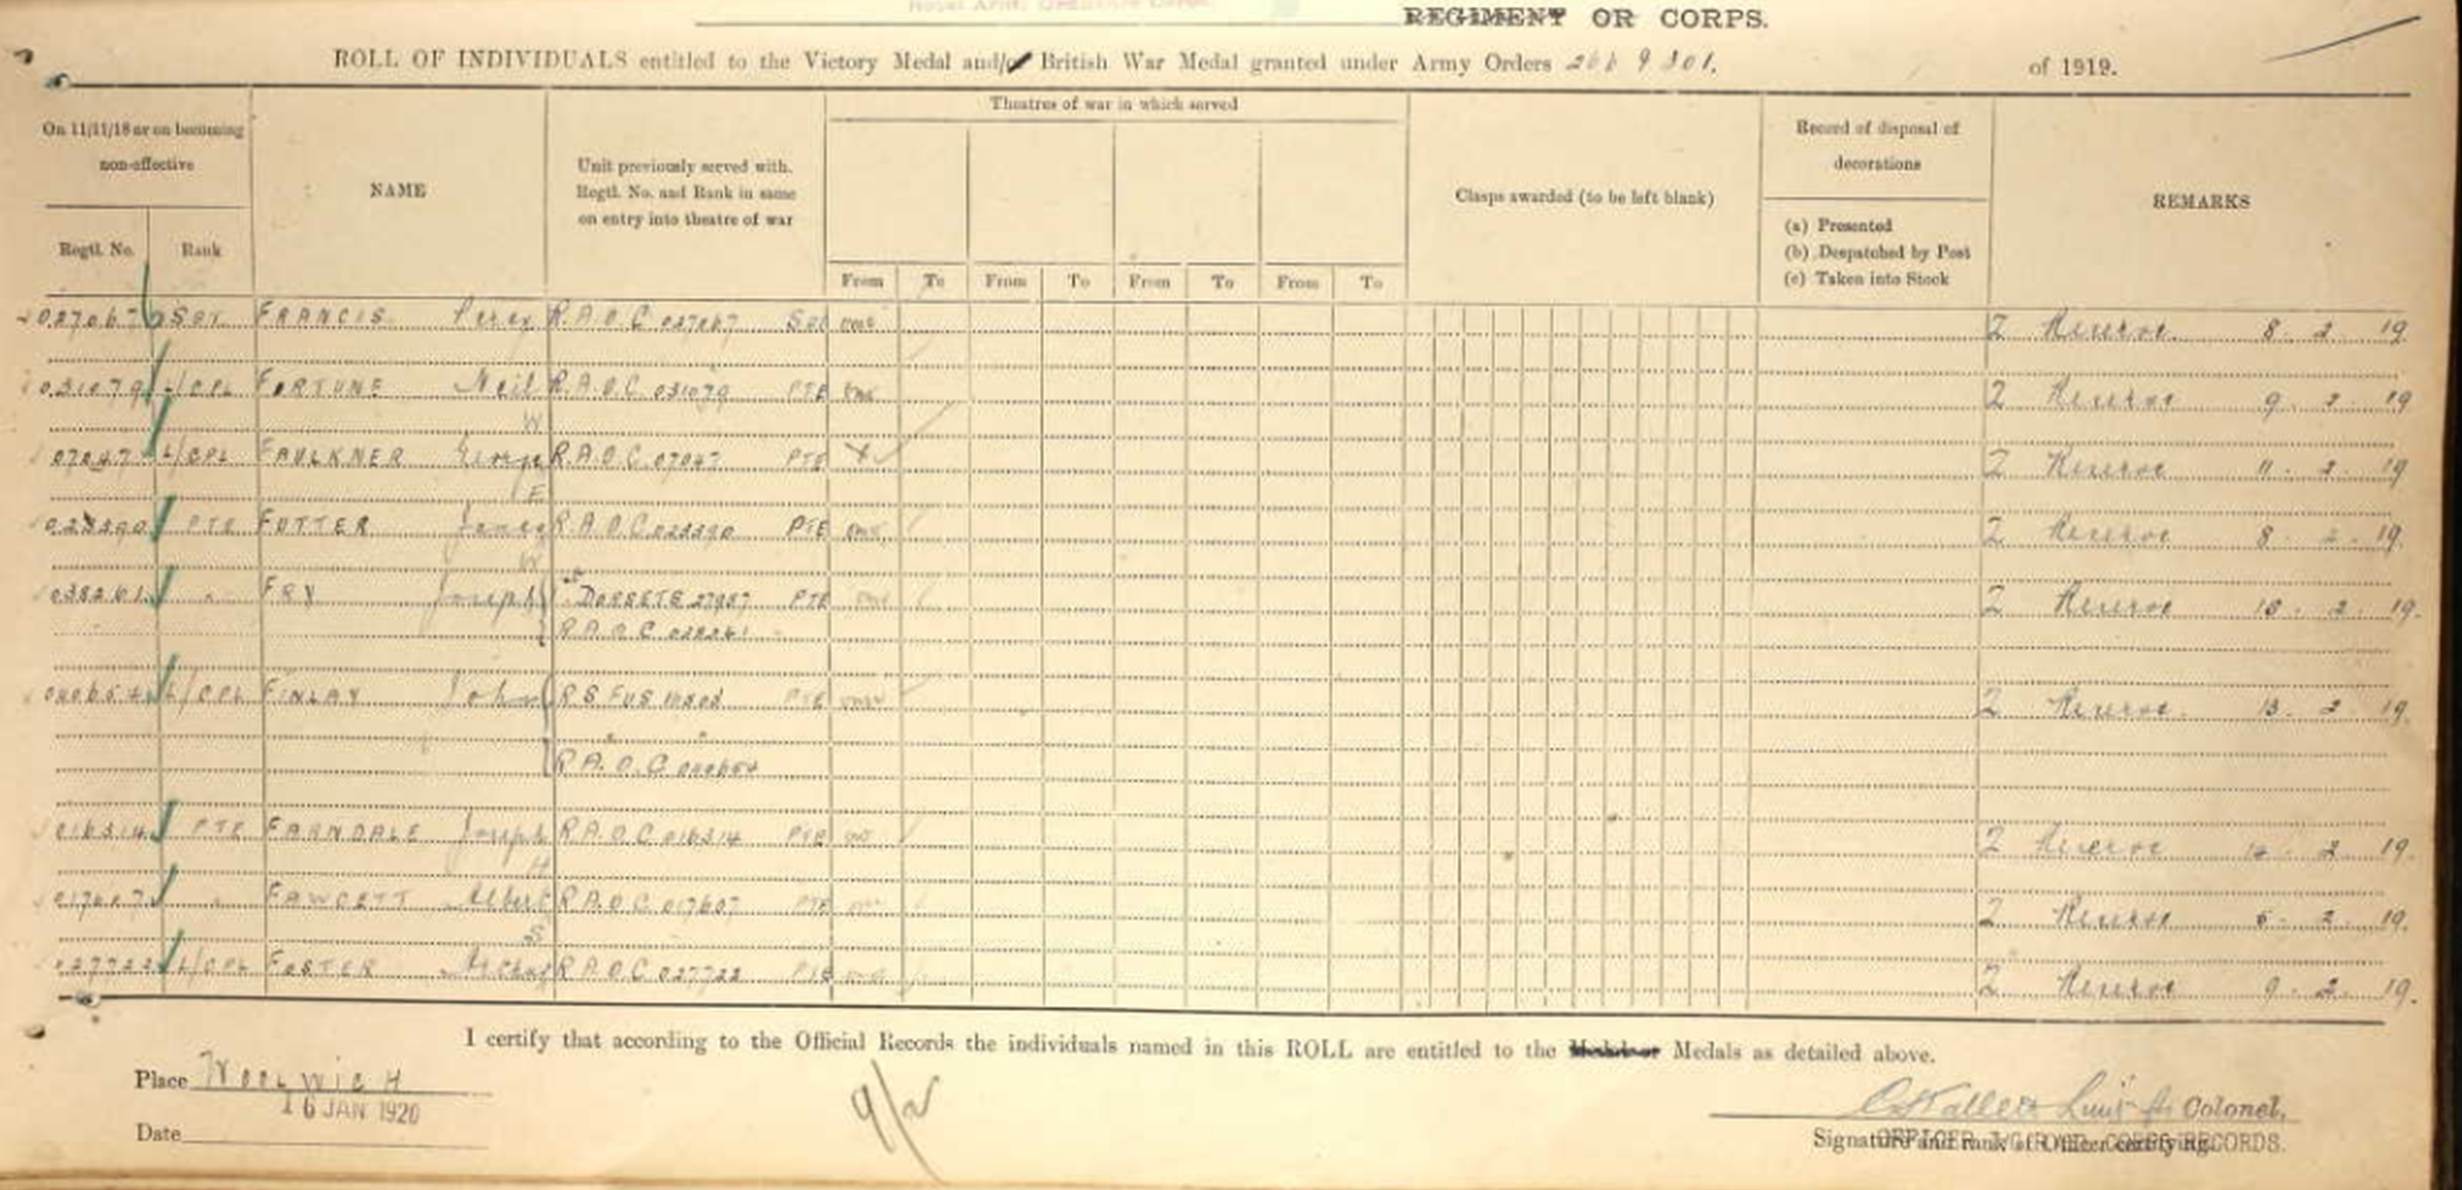 REGIMENT OR CORPS.
ROLL OF INDIVIDUALS entitled to the Victory Medal and/or British War Medal granted under Army Orders 266 & 301. of 1919.
On 11/11/18 or on becoming non-effective
Regtl. No. Rank
NAME
Unit previously served with. Regtl. No. and Rank in same on entry into theatre of war
Theatres of war in which served
From To From To From To From To
Clasps awarded (to be left blank)
Record of disposal of decorations
(a) Presented
(b) Despatched by Post
(c) Taken into Stock
REMARKS
027067 SGT FRANCIS Percy R.A.O.C 027067 Z Reserve 8. 2. 19
031079 L/CPL FORTUNE Neil R.A.O.C. 031079 PTE Z Reserve 9. 2. 19
W
07047 L/CPL FAULKNER George R.A.O.C 07047 PTE Z Reserve 11. 2. 19
E
PTE FUTTER James R.A.O.C. PTE Z Reserve 8. 2. 19.
W
038261 " FRY Joseph DORSETS PTE Z Reserve 10. 2. 19.
R.A.O.C 038261
040654 L/CPL FINLAY John R S FUS PTE Z Reserve 13. 2. 19.
R.A.O.C 040654
016314 PTE FARNDALE Joseph R.A.O.C 016314 PTE Z Reserve 2. 19.
H
017607 " FAWCETT Albert R.A.O.C 017607 PTE Z Reserve 2. 19.
S
027722 L/CPL FOSTER Arthur R.A.O.C 027722 PTE Z Reserve 9. 2. 19.
I certify that according to the Official Records the individuals named in this ROLL are entitled to the Medals as detailed above.
Place WOOLWICH
16 JAN 1920
Date
9/2
Colonel,
Signature and rank of Officer certifying.